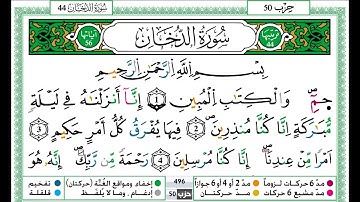 سُورَةُ الدُّخَانِ 44
حِزْب 50
ترتيبها 44
سُورَةُ الدُّخَانِ
آياتها 56
بِسْمِ اللَّهِ الرَّحْمَٰنِ الرَّحِيمِ
حمٓ 1 وَالْكِتَابِ الْمُبِينِ 2 إِنَّا أَنزَلْنَاهُ فِي لَيْلَةٍ
مُّبَارَكَةٍ إِنَّا كُنَّا مُنذِرِينَ 3 فِيهَا يُفْرَقُ كُلُّ أَمْرٍ حَكِيمٍ
أَمْرًا مِّنْ عِندِنَا إِنَّا كُنَّا مُرْسِلِينَ 4 رَحْمَةً مِّن رَّبِّكَ إِنَّهُ هُوَ
مدّ 6 حركات لزوماً مدّ 2 أو 4 أو 6 جوازاً 496 إخفاء ومواقع الغُنَّة (حركتان) تفخيم
مدّ مشبع 6 حركات مدّ حركتان حزب 50 إدغام، وما لا يُلفَظ قلقلة